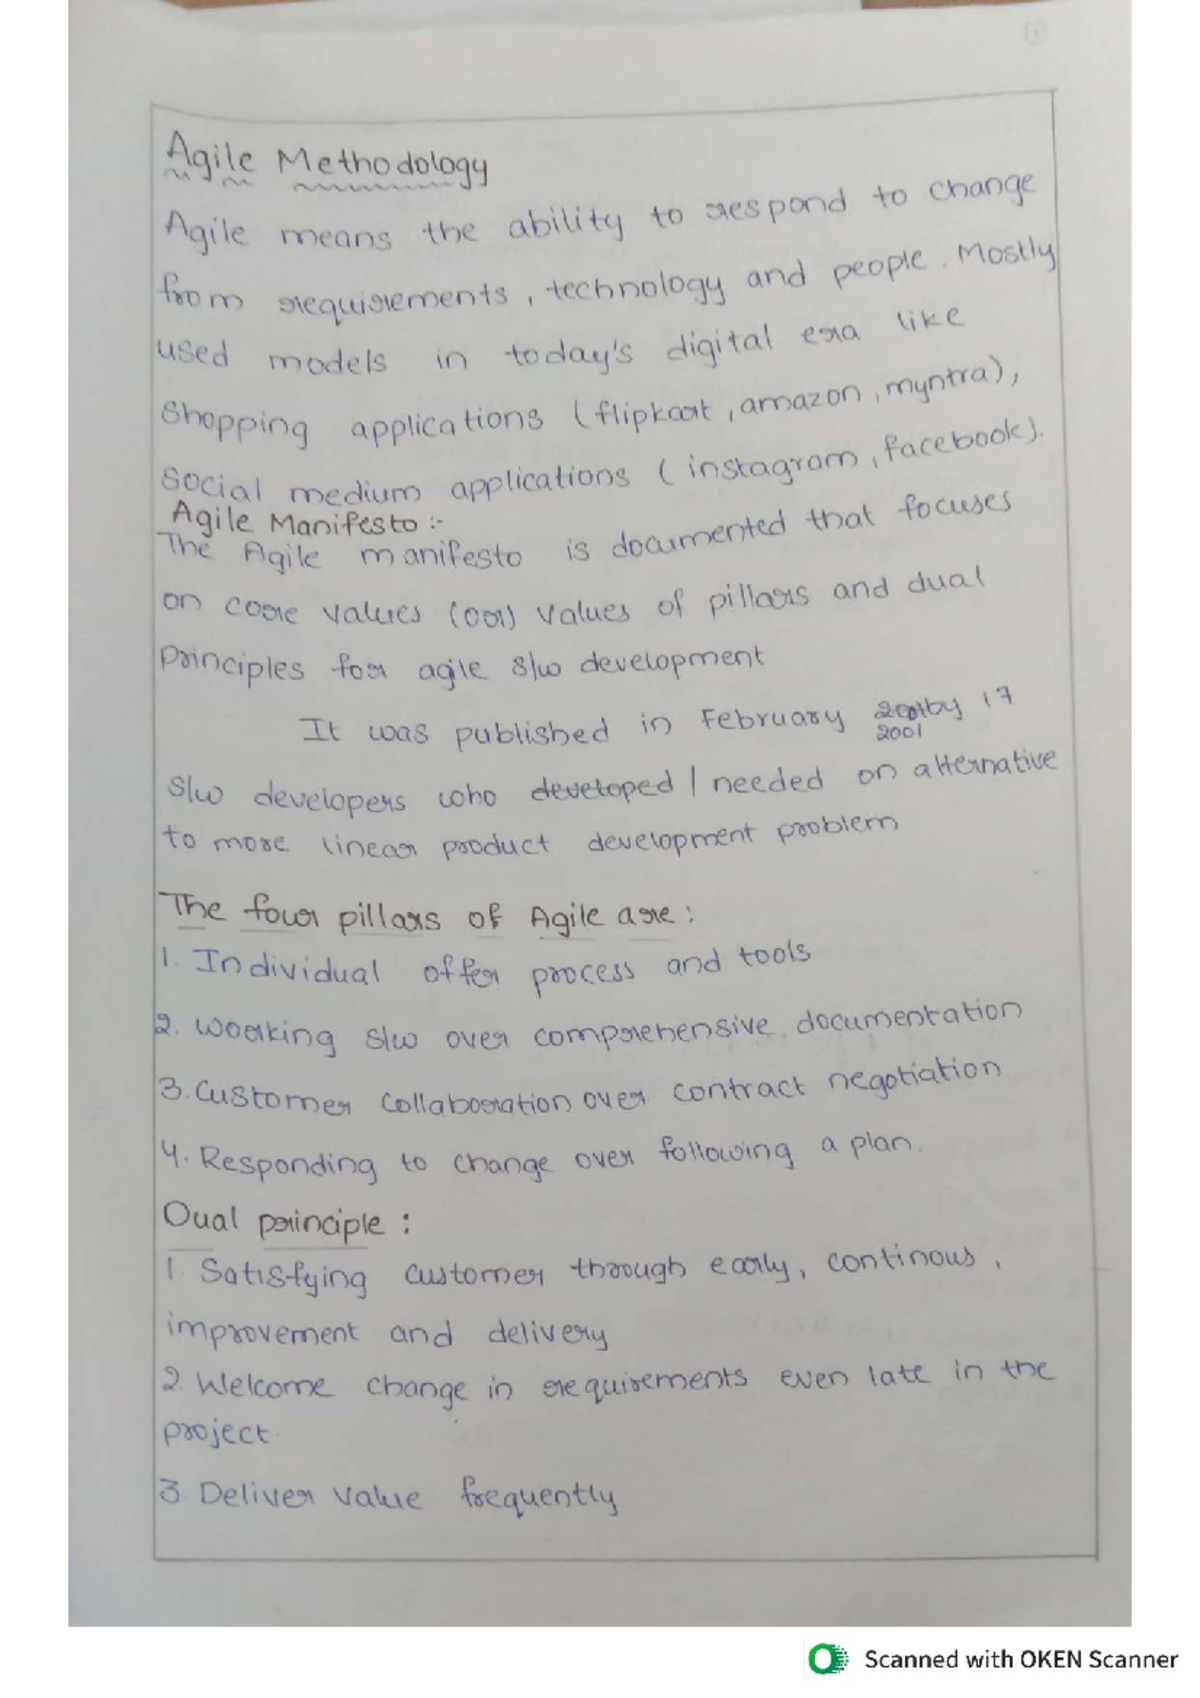 Agile Methodology
Agile means the ability to respond to change
from requirements, technology and people. Mostly
used models in today's digital era like
Shopping applications (flipkart, amazon, myntra),
Social medium applications (instagram, facebook).
Agile Manifesto :-
The Agile manifesto is documented that focuses
on core values (or) values of pillars and dual
principles for agile s/w development
It was published in February by 17
2001
s/w developers who developed / needed on alternative
to more linear product development problem
The four pillars of Agile are :
1. Individual offer process and tools
2. Working s/w over comprehensive documentation
3. Customer collaboration over contract negotiation
4. Responding to change over following a plan.
Dual principle :
1. Satisfying customer through early, continous,
improvement and delivery
2. Welcome change in requirements even late in the
project
3. Deliver value frequently
Scanned with OKEN Scanner